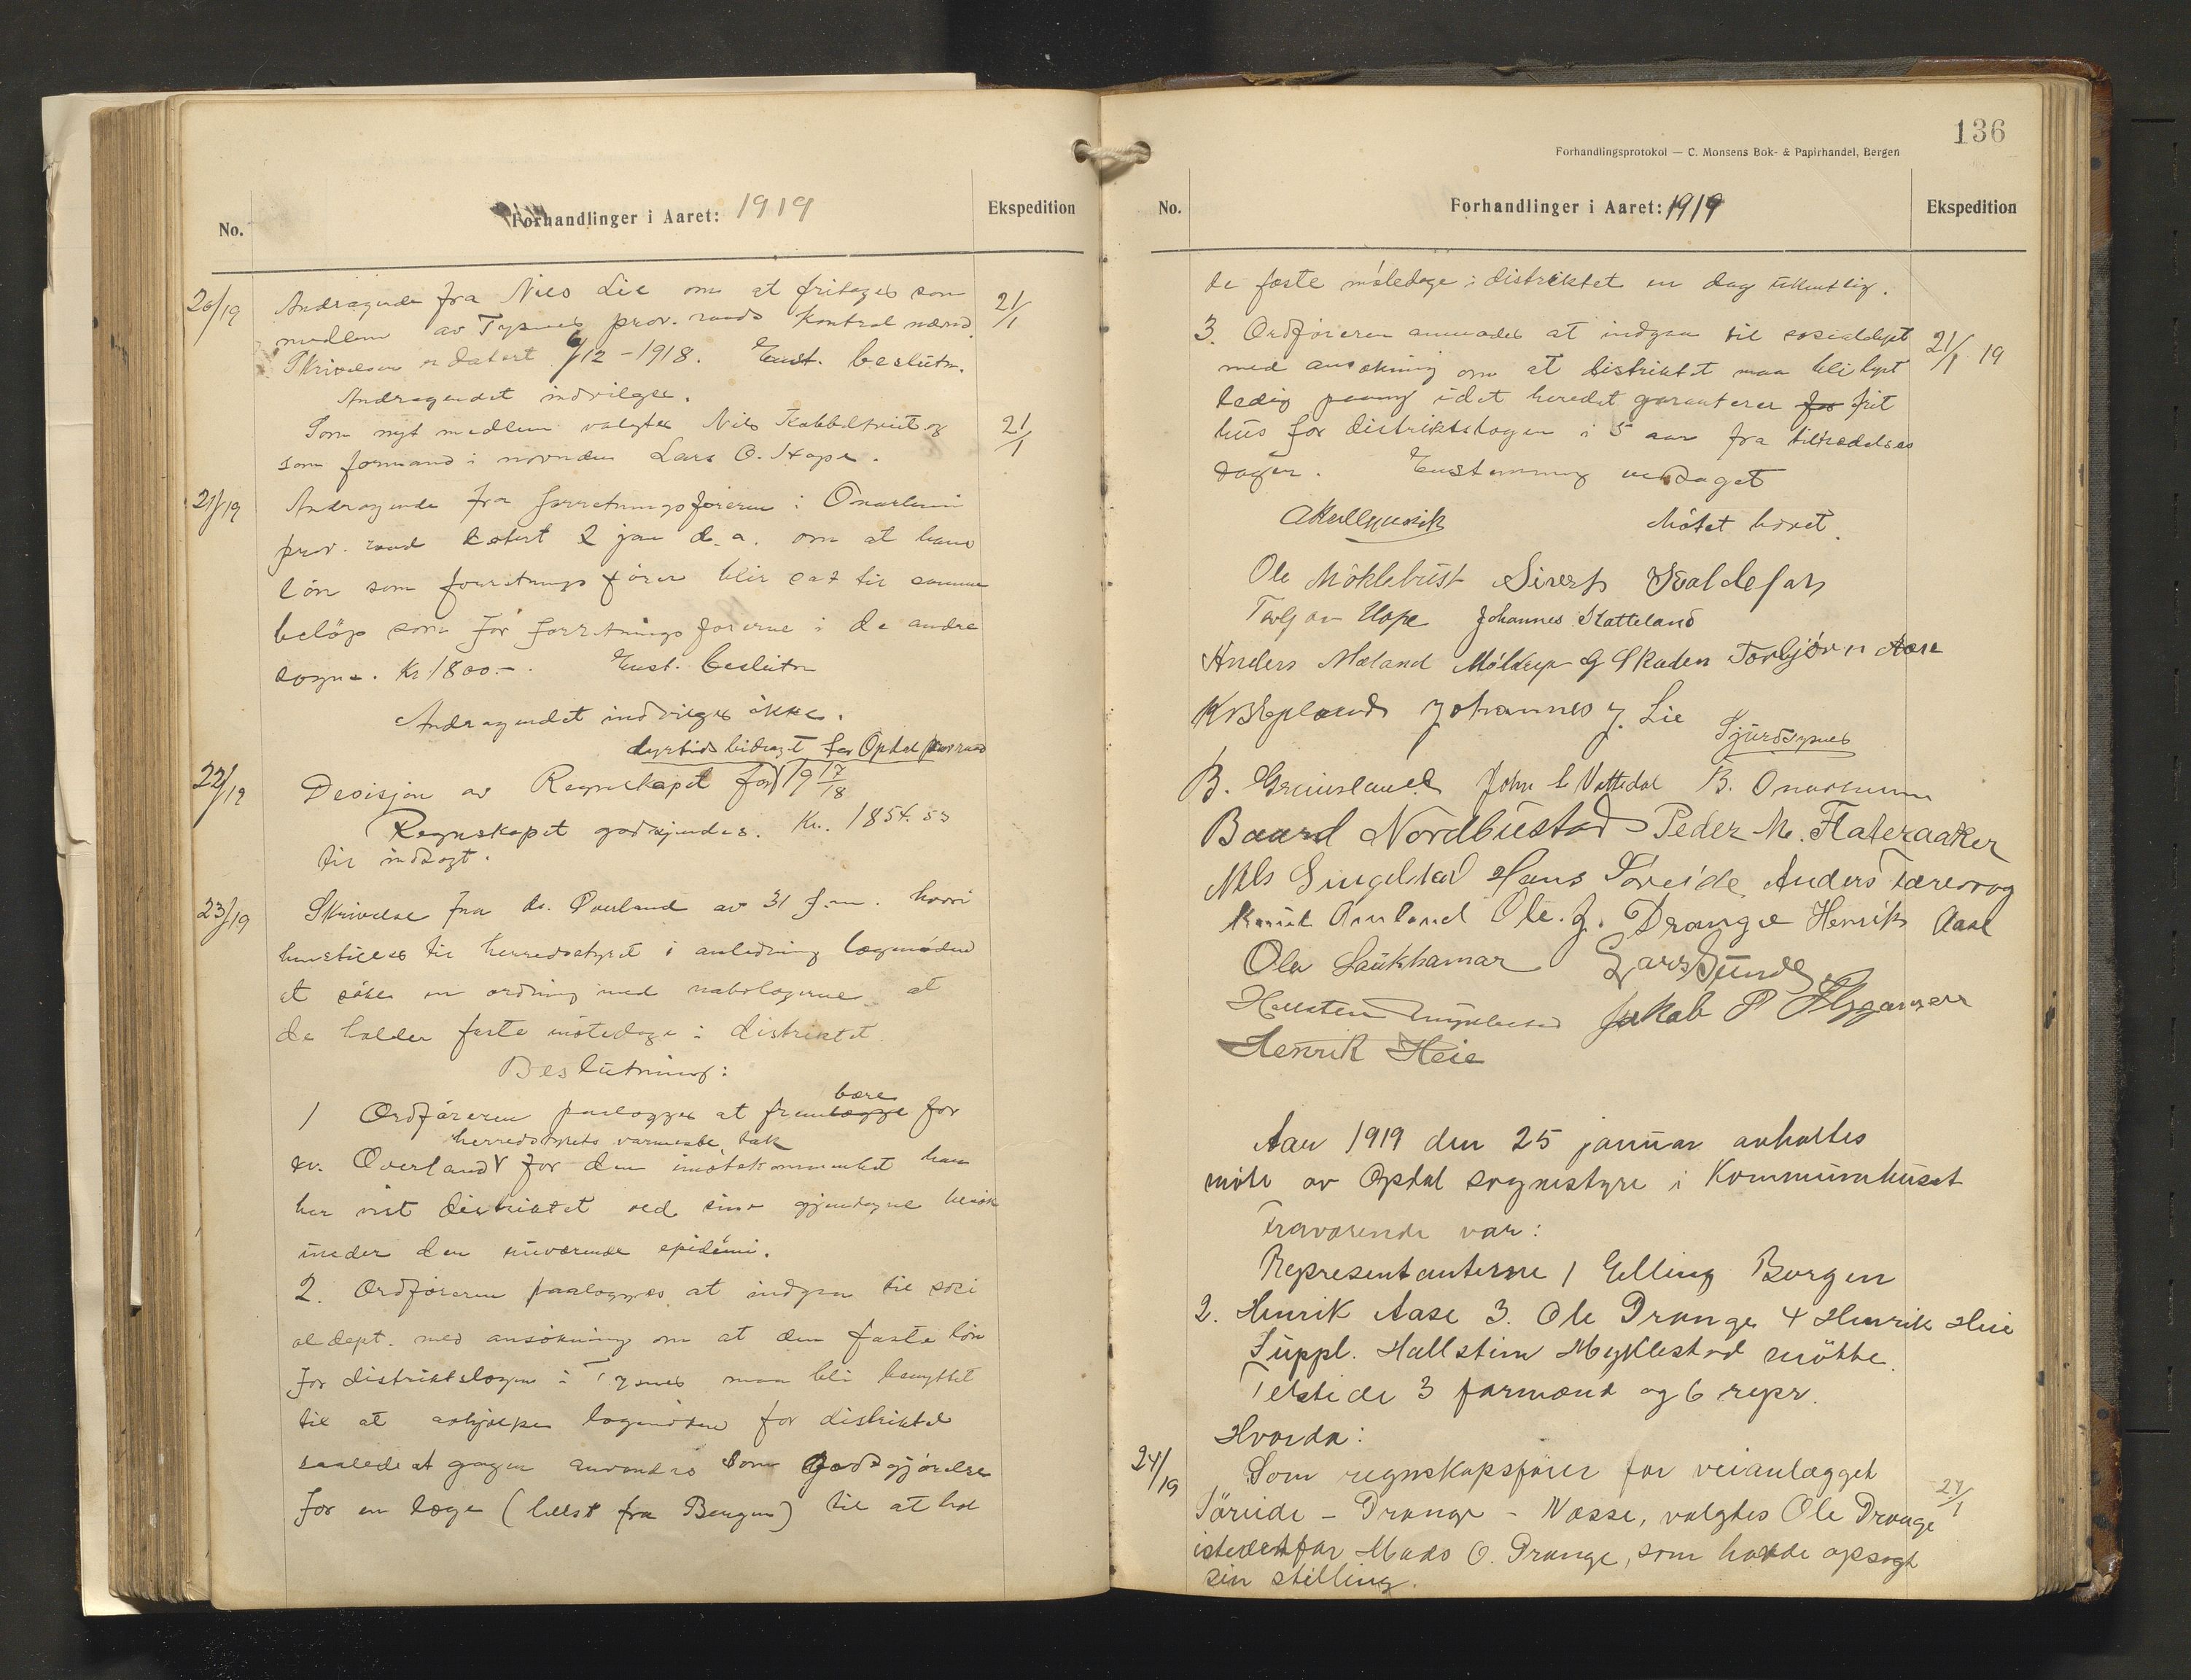 No.
Forhandlinger i Aaret: 1919
Ekspedition
20/19
Andragende fra Nils Lie om at fritages som
21/1
medlem av Tysnes prov. raads kontrol nævnd.
Skrivelsen er datert 6/12-1918. Enst. beslutn.
Andragendet indvilges.
Som nyt medlem valgtes Nils og
21/1
som formand i nævnden Lars O. Hope.
21/19
Andragende fra forretningsföreren i Onarheim
prov. raad datert 2 jan d. a. om at hans
lön som forretningsförer blir sat til samme
belöp som for forretningsförerne i de andre
sogne. Kr 1800.-. Enst. beslutn
Andragendet indvilges ikke.
dyrtidsbidraget for Opdal provraad
22/19
Decisjon av Regnskapet for 1917/8
Regnskapet godkjendes. Kr. 1854.53
til indtægt.
23/19
Skrivelse fra dr. Överland av 31 f.m. hvori
henstilles til herredsstyret i anledning lægenöden
at söke en ordning med nabolægerne at
de holder faste mötedage i distriktet.
Beslutning:
1 Ordföreren paalægges at frembære for
herredstyrets varmeste tak
dr. Överland for den imötekommenhet han
har vist distriktet ved sine gjentagne besök
under den nuværende epidemi.
2. Ordföreren paalægges at indgaa til sosi
aldept. med ansökning om at den faste lön
for distriktslægen i Tysnes maa bli benyttet
til at avhjælpe lægenöden for distriktet
saaledes at gagen anvendes som Godtgjörelse
for en læge (helst fra Bergen) til at hol
136
Forhandlingsprotokol — C. Monsens Bok- & Papirhandel, Bergen
No.
Forhandlinger i Aaret: 1919
Ekspedition
de faste mötedage i distriktet en dag ukentlig.
3. Ordföreren anmodes at indgaa til sosialdept
21/1 19
med ansökning om at distriktet maa bli lyst
ledig idet heredet garanterer for frit
hus for distriktslægen i 5 aar fra tiltrædelses
dagen. Enstemmig vedtaget
Mötet hævet.
Ole Möklebust Sivert Svaldefar
Torbj on Hope Johannes Skatteland
Anders Mæland G Skaden Torbjörn Aase
Johannes J. Lie
B. Greinsland John L Vattedal B. Onarheim
Baard Nordbustad Peder M. Flateraaker
Nils Singelstad Hans Söreide Anders Færevaag
Knut Overland Ole. J. Drange Henrik Aase
Ola Laukhamar Lars Sunde
Hallstein Myklestad Jakob P Flygansvær
Henrik Heie
Aar 1919 den 25 januar avholtes
möte av Opdal sognestyre i Kommunehuset
Fraværende var:
Representanterne 1 Elling Borgen
2. Henrik Aase 3. Ole Drange 4 Henrik Heie
Suppl. Hallstein Myklestad mötte.
Tilstede 3 formænd og 6 repr.
Hvorda:
24/19
Som regnskapsförer for veianlægget
27/1
Söreide - Drange - Næsse, valgtes Ole Drange
istedenfor Mads O. Drange, som hadde opsagt
sin stilling.